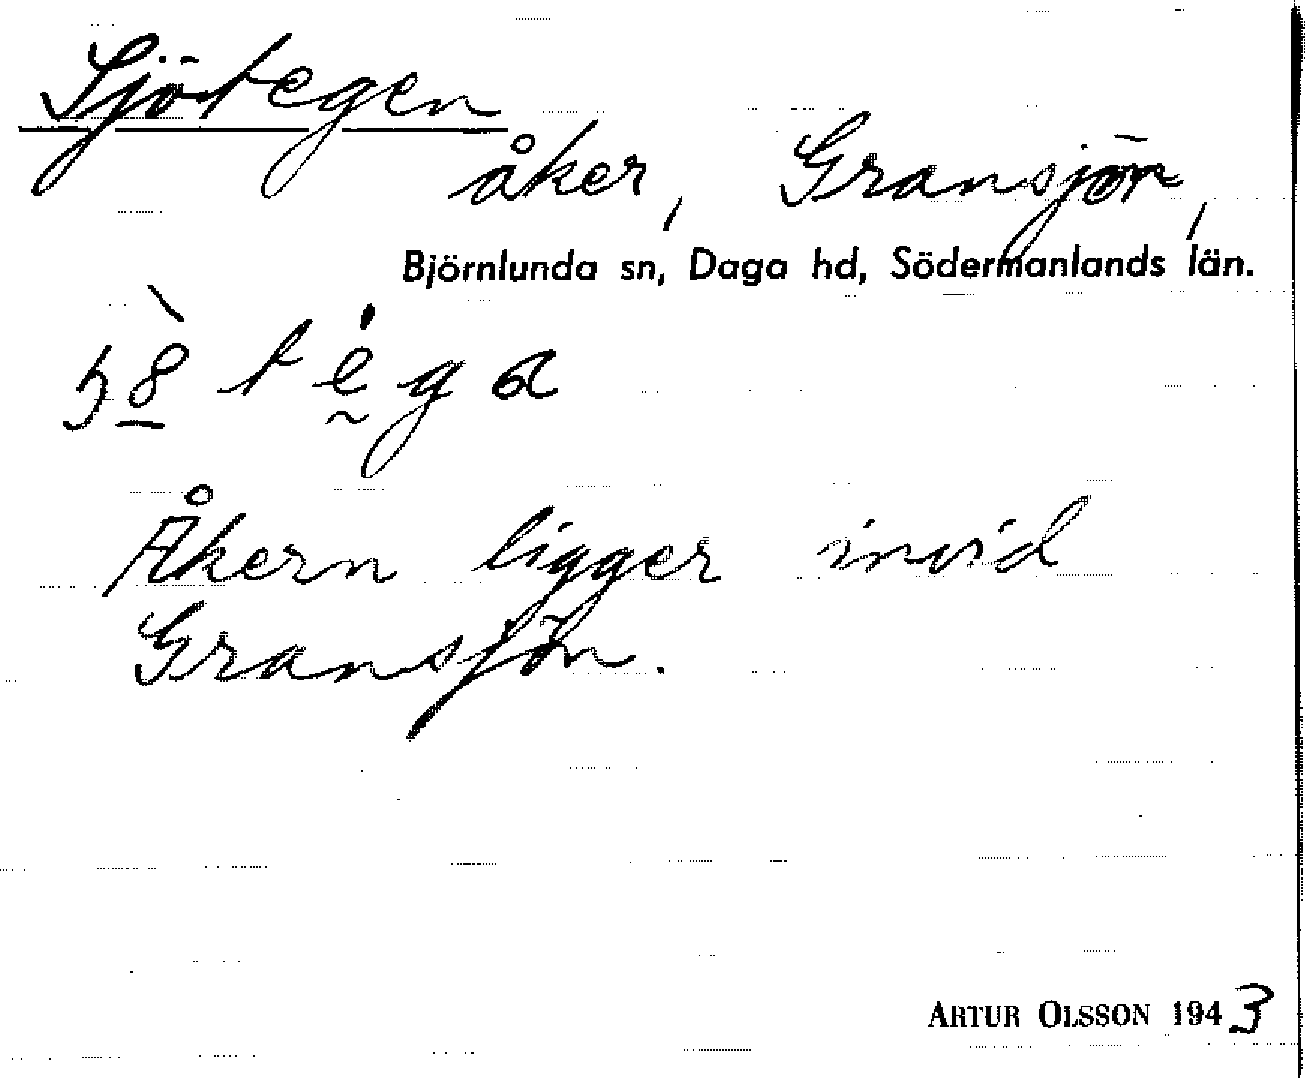 Sjötegen
åker, Gransjön,
Björnlunda sn, Daga hd, Södermanlands län.
Åkern ligger invid
Gransjön.
ARTUR OLSSON 1943